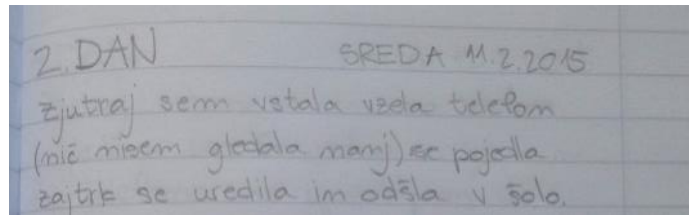 2. DAN SREDA 11.2.2015
zjutraj sem vstala vzela telefon
(nič nisem gledala manj) se pojedla
zajtrk se uredila in odšla v šolo.